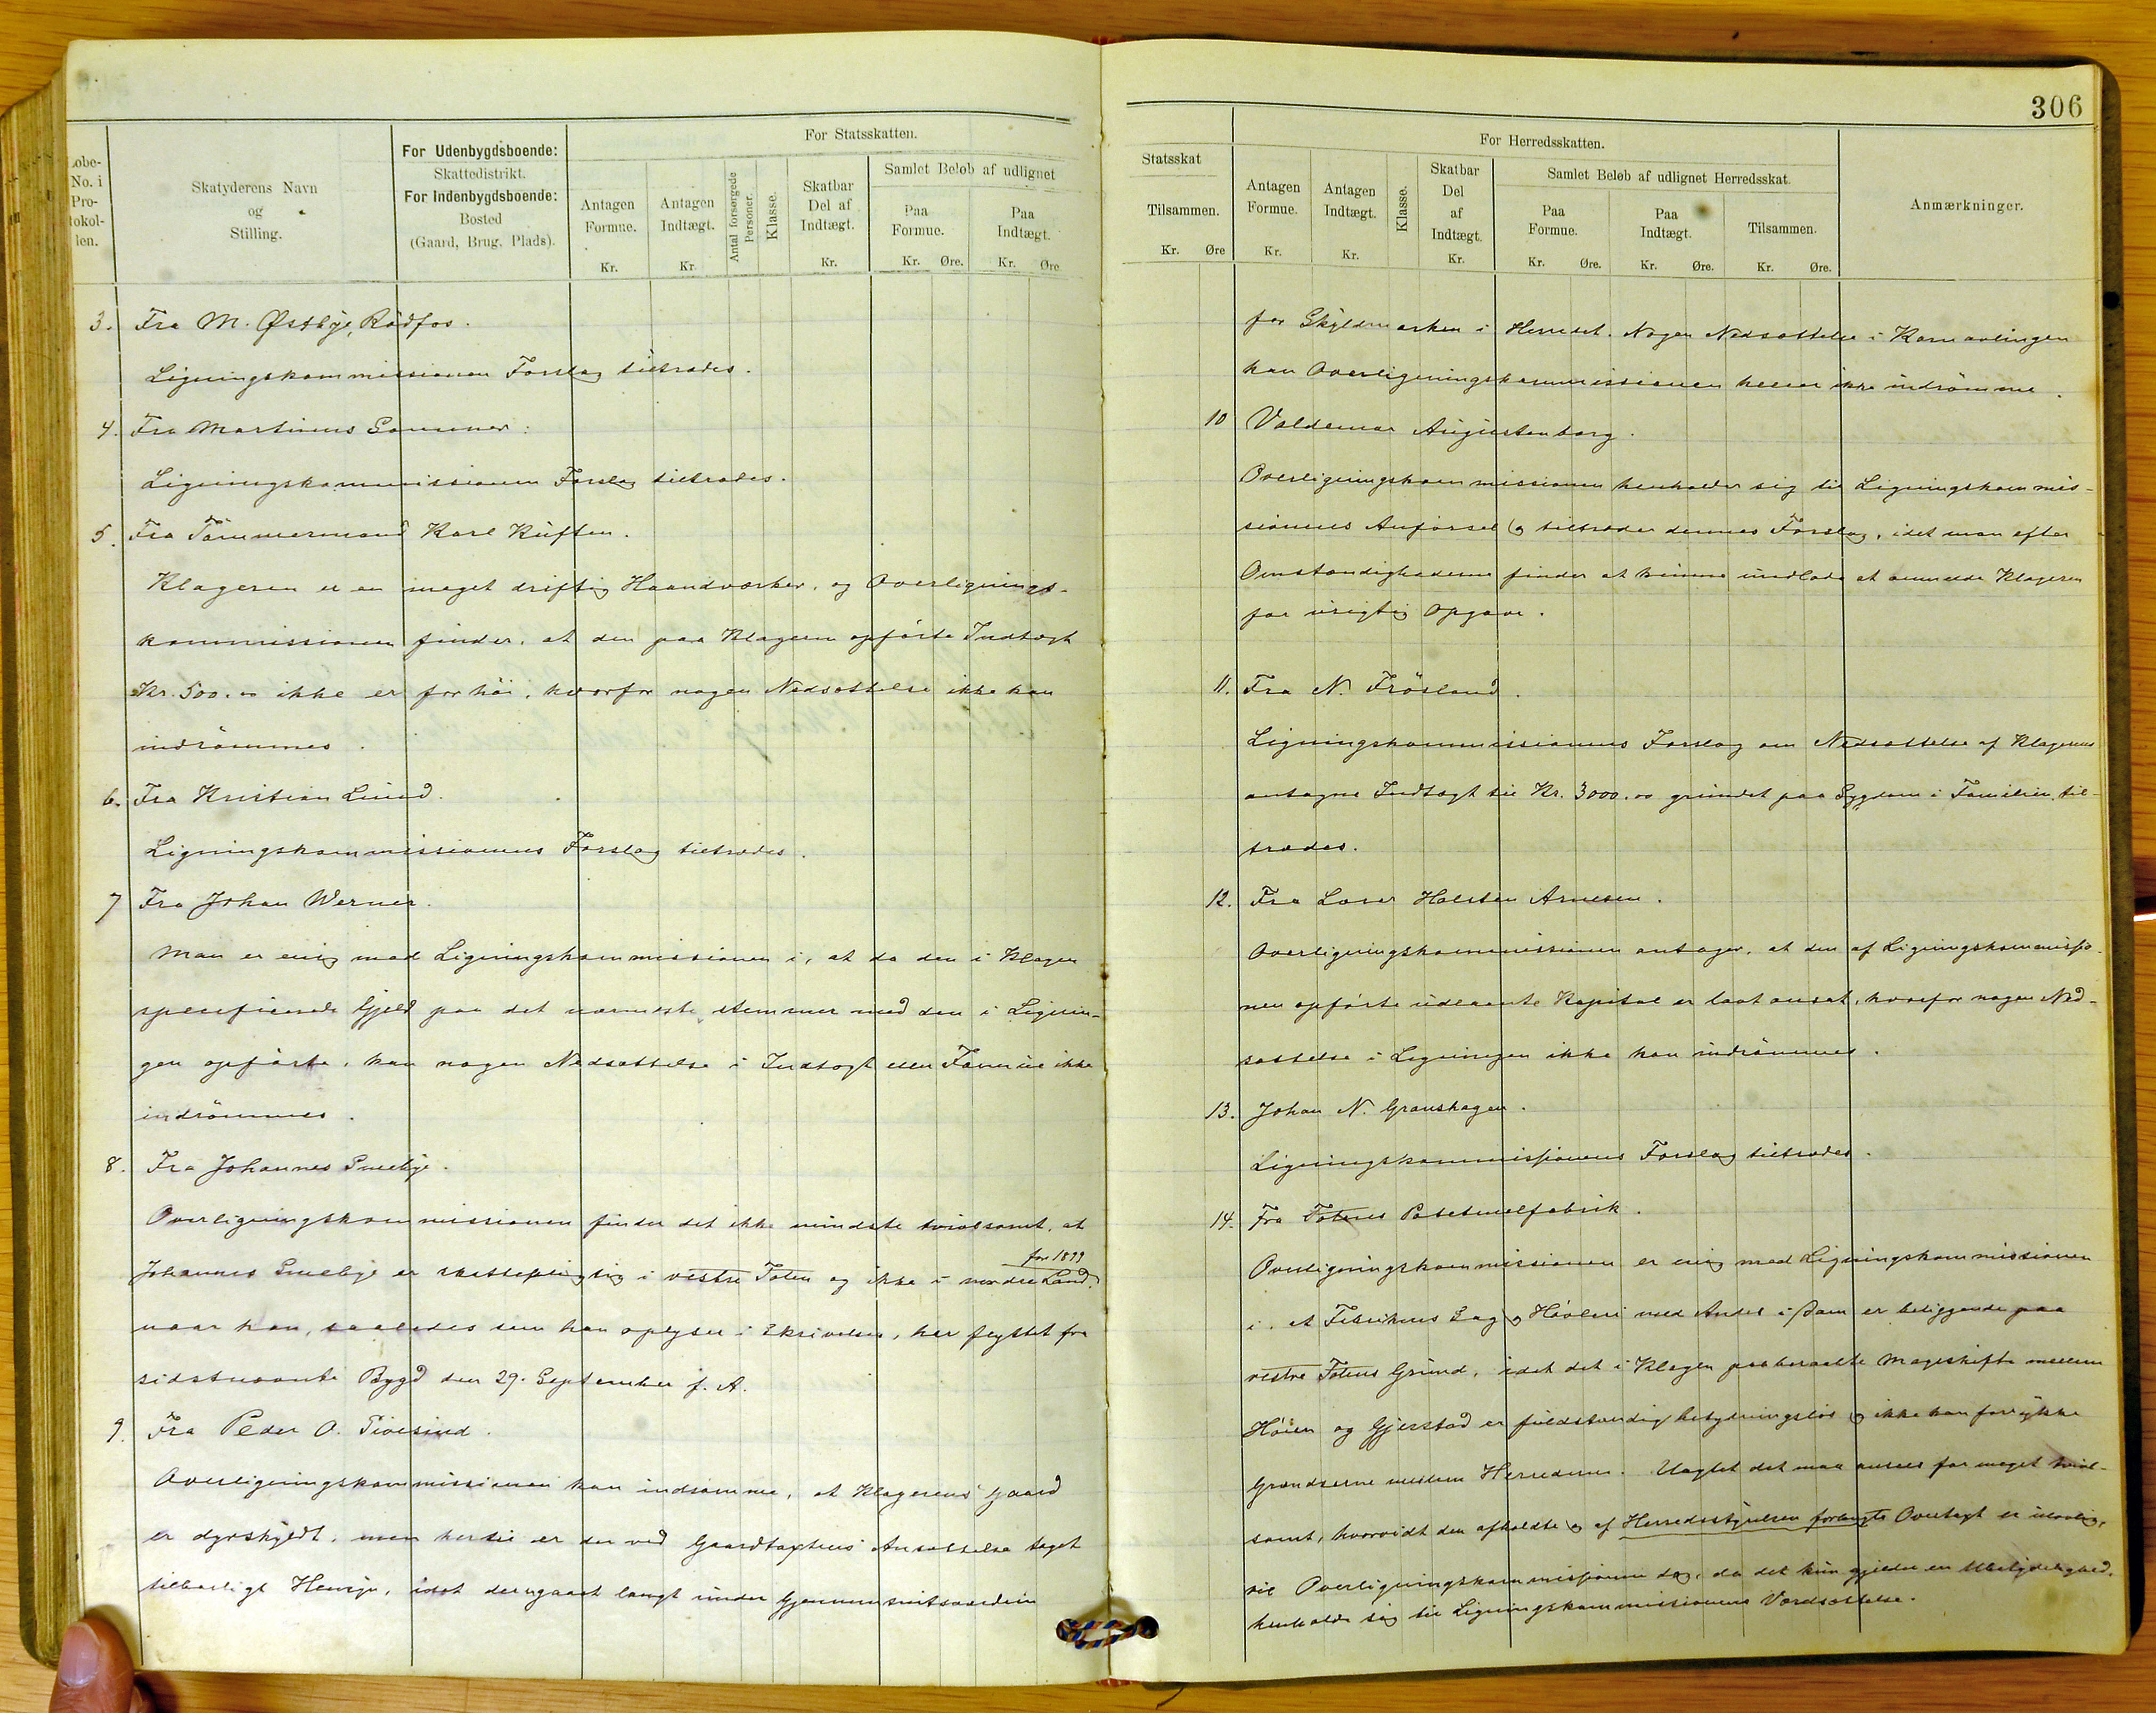 306
Løbe-
No. i
Pro-
tokol-
len.
Skatyderens Navn
og
Stilling.
For Udenbygdsboende:
Skattedistrikt.
For Indenbygdsboende:
Bosted
(Gaard, Brug, Plads).
For Statsskatten.
Antagen
Formue.
Kr.
Antagen
Indtægt.
Kr.
Antal forsørgede
Personer.
Klasse.
Skatbar
Del af
Indtægt.
Kr.
Samlet Beløb af udlignet
Paa
Formue.
Kr. Øre.
Paa
Indtægt.
Kr. Øre.
3. Fra M. Østbye, Rødfos.
Ligningskommissionen Forslag tiltrædes.
4. Fra Martinus Sommer:
Ligningskommissionen Forslag tiltrædes.
5. Fra Tømmermand Karl Kuften.
Klageren er en meget driftig Haandværker, og Overlignings-
kommissionen finder, at den paa Klageren opførte Indtægt
Kr. 500.00 ikke er for høi, hvorfor nogen Nedsættelse ikke kan
indrømmes.
6. Fra Kristian Lund.
Ligningskommissionens Forslag tiltrædes.
7 Fra Johan Werner.
Man er enig med Ligningskommissionen i, at da den i Klagen
specificerede Gjeld paa det nærmeste stemmer med den i Lignin-
gen opførte, kan nogen Nedsættelse i Indtægt eller Formue ikke
indrømmes.
8. Fra Johannes Smebye.
Overligningskommissionen finder det ikke mindste tvivlsomt, at
for 1899
Johannes Smebye er skattepligtig i vestre Toten og ikke i nordre Land,
naar han, saaledes som han oplyser i Skrivelsen, har flyttet fra
sidstnævnte Bygd den 29. September f. A.
9. Fra Peder O. Sivesind.
Overligningskommissionen kan indrømme, at Klagerens Gaard
er dyrskyldt, men hertil er der ved Gaardtaxtens Ansættelse taget
tilbørligt Hensyn, idet den gaaet langt under Gjennemsnitsværdien
Statsskat
Tilsammen.
Kr. Øre
For Herredsskatten.
Antagen
Formue.
Kr.
Antagen
Indtægt.
Kr.
Klasse.
Skatbar
Del
af
Indtægt.
Kr.
Samlet Beløb af udlignet Herredsskat.
Paa
Formue.
Kr. Øre.
Paa
Indtægt.
Kr. Øre.
Tilsammen.
Kr. Øre.
Anmærkninger.
for Skyldmarken i Herredet. Nogen Nedsættelse i Kornavlingen
kan Overligningskommissionen heller ikke indrømme.
10 Valdemar Augustenborg.
Overligningskommissionen henholder sig til Ligningskommis-
sionens Anførsel og tiltræder dennes Forslag, idet man efter
Omstændighederne finder at kunne undlade at anmelde Klageren
for urigtig Opgave.
11. Fra N. Frøsland.
Ligningskommissionens Forslag om Nedsættelse af Klagerens
antagne Indtægt til Kr. 3000.00 grundet paa Sygdom i Familien, til-
trædes.
12. Fra Halsten Arnesen.
Overligningskommissionen antager, at den af Ligningskommissio-
nen opførte udlaante Kapital er lavt ansat, hvorfor nogen Ned-
sættelse i Ligningen ikke kan indrømmes.
13. Johan N. Granshagen.
Ligningskommissionens Forslag tiltrædes.
14. Fra Totens Potetmelfabrik.
Overligningskommissionen er enig med Ligningskommissionen
i, at Fabrikens Sag og Høvleri med Andel i Dam er beliggende paa
vestre Totens Grund, idet det i Klagen paaberaabte Mageskifte mellem
Høien og Gjerstad er fuldstændig betydningsløs og ikke kan forrykke
Grændserne mellem Herrederne. Uagtet det maa ansees for meget tvivl-
somt, hvorvidt den afholdte og af Herredsstyrelsen forlangte Overtaxt er ulovlig,
vil Overligningskommissionen dog, da det kun gjelder en Ubetydelighed,
henholde sig til Ligningskommissionens Værdsættelse.